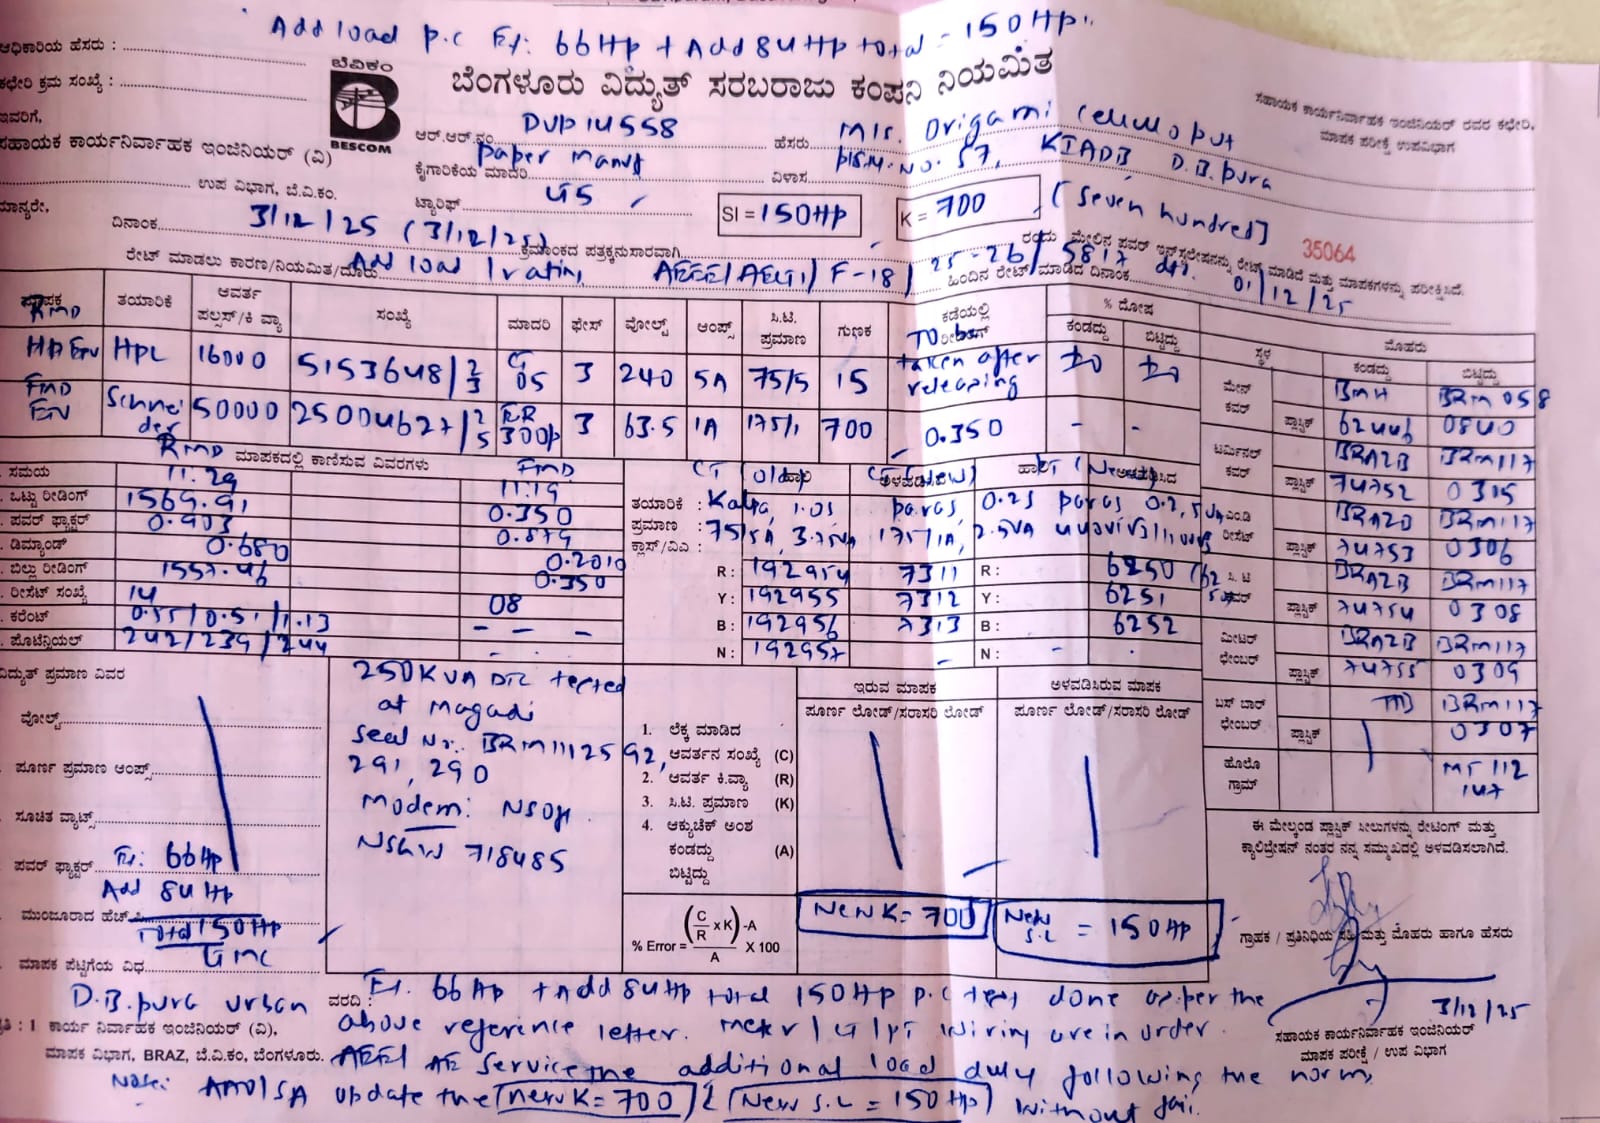 Add load p.c Ex: 66Hp + Add 84Hp total = 150Hp.
ಅಧಿಕಾರಿಯ ಹೆಸರು :
ಕಛೇರಿ ಕ್ರಮ ಸಂಖ್ಯೆ :
ಇವರಿಗೆ,
ಸಹಾಯಕ ಕಾರ್ಯನಿರ್ವಾಹಕ ಇಂಜಿನಿಯರ್ (ವಿ)
ಉಪ ವಿಭಾಗ, ಬೆ.ವಿ.ಕಂ.
ಮಾನ್ಯರೇ,
ಬೆವಿಕಂ
BESCOM
ಬೆಂಗಳೂರು ವಿದ್ಯುತ್ ಸರಬರಾಜು ಕಂಪನಿ ನಿಯಮಿತ
ಸಹಾಯಕ ಕಾರ್ಯನಿರ್ವಾಹಕ ಇಂಜಿನಿಯರ್ ರವರ ಕಛೇರಿ,
ಮಾಪಕ ಪರೀಕ್ಷೆ ಉಪವಿಭಾಗ
ಆರ್.ಆರ್.ನಂ. DVP14558 ಹೆಸರು M/s. Origami Cellulo pvt
ಕೈಗಾರಿಕೆಯ ಮಾದರಿ paper manuf ವಿಳಾಸ No. 57, KIADB D.B.pura
ಟ್ಯಾರಿಫ್ SI = 150Hp K = 700 (Seven hundred)
ದಿನಾಂಕ 3/12/25 (3/12/25) ಕ್ರಮಾಂಕದ ಪತ್ರಕ್ಕನುಸಾರವಾಗಿ ರಂದು ಮೇಲಿನ ಪವರ್ ಇನ್‌ಸ್ಟಲೇಷನನ್ನು ರೇಟ್ ಮಾಡಿದೆ ಮತ್ತು ಮಾಪಕಗಳನ್ನು ಪರೀಕ್ಷಿಸಿದೆ.
35064
ರೇಟ್ ಮಾಡಲು ಕಾರಣ/ನಿಯಮಿತ/ದೂರು Add load rating F-18/25-26/5817 ಹಿಂದಿನ ರೇಟ್ ಮಾಡಿದ ದಿನಾಂಕ 01/12/25
ಮಾಪಕ ತಯಾರಿಕೆ ಆವರ್ತ ಪಲ್ಸಸ್/ಕಿ ವ್ಯಾ ಸಂಖ್ಯೆ ಮಾದರಿ ಫೇಸ್ ವೋಲ್ಟ್ ಆಂಪ್ಸ್ ಸಿ.ಟಿ. ಪ್ರಮಾಣ ಗುಣಕ ಕಡೆಯಲ್ಲಿ ರೀಡಿಂಗ್ % ದೋಷ ಕಂಡದ್ದು ಬಿಟ್ಟಿದ್ದು
RMD HPL 16000 5153648 05 3 240 5A 75/5 15 To be taken after releasing
FMD Schneider 50000 25004627 300p 3 63.5 1A 175/1 700 0.350 - -
ಸ್ಥಳ ಮೊಹರು ಕಂಡದ್ದು ಬಿಟ್ಟಿದ್ದು
ಮೇನ್ ಕವರ್ BMH BRM 058
ಪ್ಲಾಸ್ಟಿಕ್ 62446 0840
ಟರ್ಮಿನಲ್ ಕವರ್ BRAZB BRM117
ಪ್ಲಾಸ್ಟಿಕ್ 74752 0305
ಎಂ.ಡಿ ರೀಸೆಟ್ BRAZB BRM117
ಪ್ಲಾಸ್ಟಿಕ್ 74753 0306
ಸಿ.ಟಿ ಕವರ್ BRAZB BRM117
ಪ್ಲಾಸ್ಟಿಕ್ 74754 0308
ಮೀಟರ್ ಛೇಂಬರ್ BRAZB BRM117
ಪ್ಲಾಸ್ಟಿಕ್ 74755 0309
ಬಸ್ ಬಾರ್ ಛೇಂಬರ್ BRM117
ಪ್ಲಾಸ್ಟಿಕ್ 0307
ಹೊಲೊ ಗ್ರಾಮ್ 112 147
RMD ಮಾಪಕದಲ್ಲಿ ಕಾಣಿಸುವ ವಿವರಗಳು FMD
ಸಮಯ 11.29 11.19
ಒಟ್ಟು ರೀಡಿಂಗ್ 1569.91 0.350
ಪವರ್ ಫ್ಯಾಕ್ಟರ್ 0.903 0.879
ಡಿಮ್ಯಾಂಡ್ 0.680 0.2010
ಬಿಲ್ಲು ರೀಡಿಂಗ್ 1557.46 0.350
ರೀಸೆಟ್ ಸಂಖ್ಯೆ 14 08
ಕರೆಂಟ್ 0.55/0.51/1.13 - - -
ಪೊಟೆನ್ಷಿಯಲ್ 242/239/244
CT (old) CT (New) PT (New)
ತಯಾರಿಕೆ : Kalpa, 1.0s paras, 0.2s paras 0.2,
ಪ್ರಮಾಣ : 75/5A, 3.75VA 175/1A, 2.5VA
ಕ್ಲಾಸ್/ವಿಎ :
R : 192954 7311 R : 6250
Y : 192955 7312 Y : 6251
B : 192956 7313 B : 6252
N : 192957 - N : -
ವಿದ್ಯುತ್ ಪ್ರಮಾಣ ವಿವರ
ವೋಲ್ಟ್
ಪೂರ್ಣ ಪ್ರಮಾಣ ಆಂಪ್ಸ್
ಸೂಚಿತ ವ್ಯಾಟ್ಸ್
ಪವರ್ ಫ್ಯಾಕ್ಟರ್ Ex: 66Hp
Add 84Hp
ಮುಂಜೂರಾದ ಹೆಚ್.ಪಿ Total 150Hp
ಮಾಪಕ ಪೆಟ್ಟಿಗೆಯ ವಿಧ GMC
250KVA DTC tested
at Magadi
Seal Nr: BRM1112592,
291, 290
Modem:
718485
ಇರುವ ಮಾಪಕ ಅಳವಡಿಸಿರುವ ಮಾಪಕ
ಪೂರ್ಣ ಲೋಡ್/ಸರಾಸರಿ ಲೋಡ್ ಪೂರ್ಣ ಲೋಡ್/ಸರಾಸರಿ ಲೋಡ್
1. ಲೆಕ್ಕ ಮಾಡಿದ ಆವರ್ತನ ಸಂಖ್ಯೆ (C)
2. ಆವರ್ತ ಕಿ.ವ್ಯಾ (R)
3. ಸಿ.ಟಿ. ಪ್ರಮಾಣ (K)
4. ಆಕ್ಯುಚೆಕ್ ಅಂಶ ಕಂಡದ್ದು (A)
ಬಿಟ್ಟಿದ್ದು
% Error = (C/R x K) -A / A X 100
New K = 700 New S.L = 150Hp
ಈ ಮೇಲ್ಕಂಡ ಪ್ಲಾಸ್ಟಿಕ್ ಸೀಲುಗಳನ್ನು ರೇಟಿಂಗ್ ಮತ್ತು
ಕ್ಯಾಲಿಬ್ರೇಷನ್ ನಂತರ ನನ್ನ ಸಮ್ಮುಖದಲ್ಲಿ ಅಳವಡಿಸಲಾಗಿದೆ.
ಗ್ರಾಹಕ / ಪ್ರತಿನಿಧಿಯ ಸಹಿ ಮತ್ತು ಮೊಹರು ಹಾಗೂ ಹೆಸರು
3/12/25
ಸಹಾಯಕ ಕಾರ್ಯನಿರ್ವಾಹಕ ಇಂಜಿನಿಯರ್
ಮಾಪಕ ಪರೀಕ್ಷೆ / ಉಪ ವಿಭಾಗ
D.B.pura urban
ಪ್ರತಿ : 1 ಕಾರ್ಯ ನಿರ್ವಾಹಕ ಇಂಜಿನಿಯರ್ (ವಿ),
ಮಾಪಕ ವಿಭಾಗ, BRAZ, ಬೆ.ವಿ.ಕಂ, ಬೆಂಗಳೂರು.
ವರದಿ : Ex. 66Hp + Add 84Hp total 150Hp p.c test done as per the
above reference letter. Meter/CT/PT wiring are in order.
AEE/ AE Service the additional load duly following the norms,
Note: AAO/SA update the (new K = 700) & (New S.L = 150Hp) without fail.